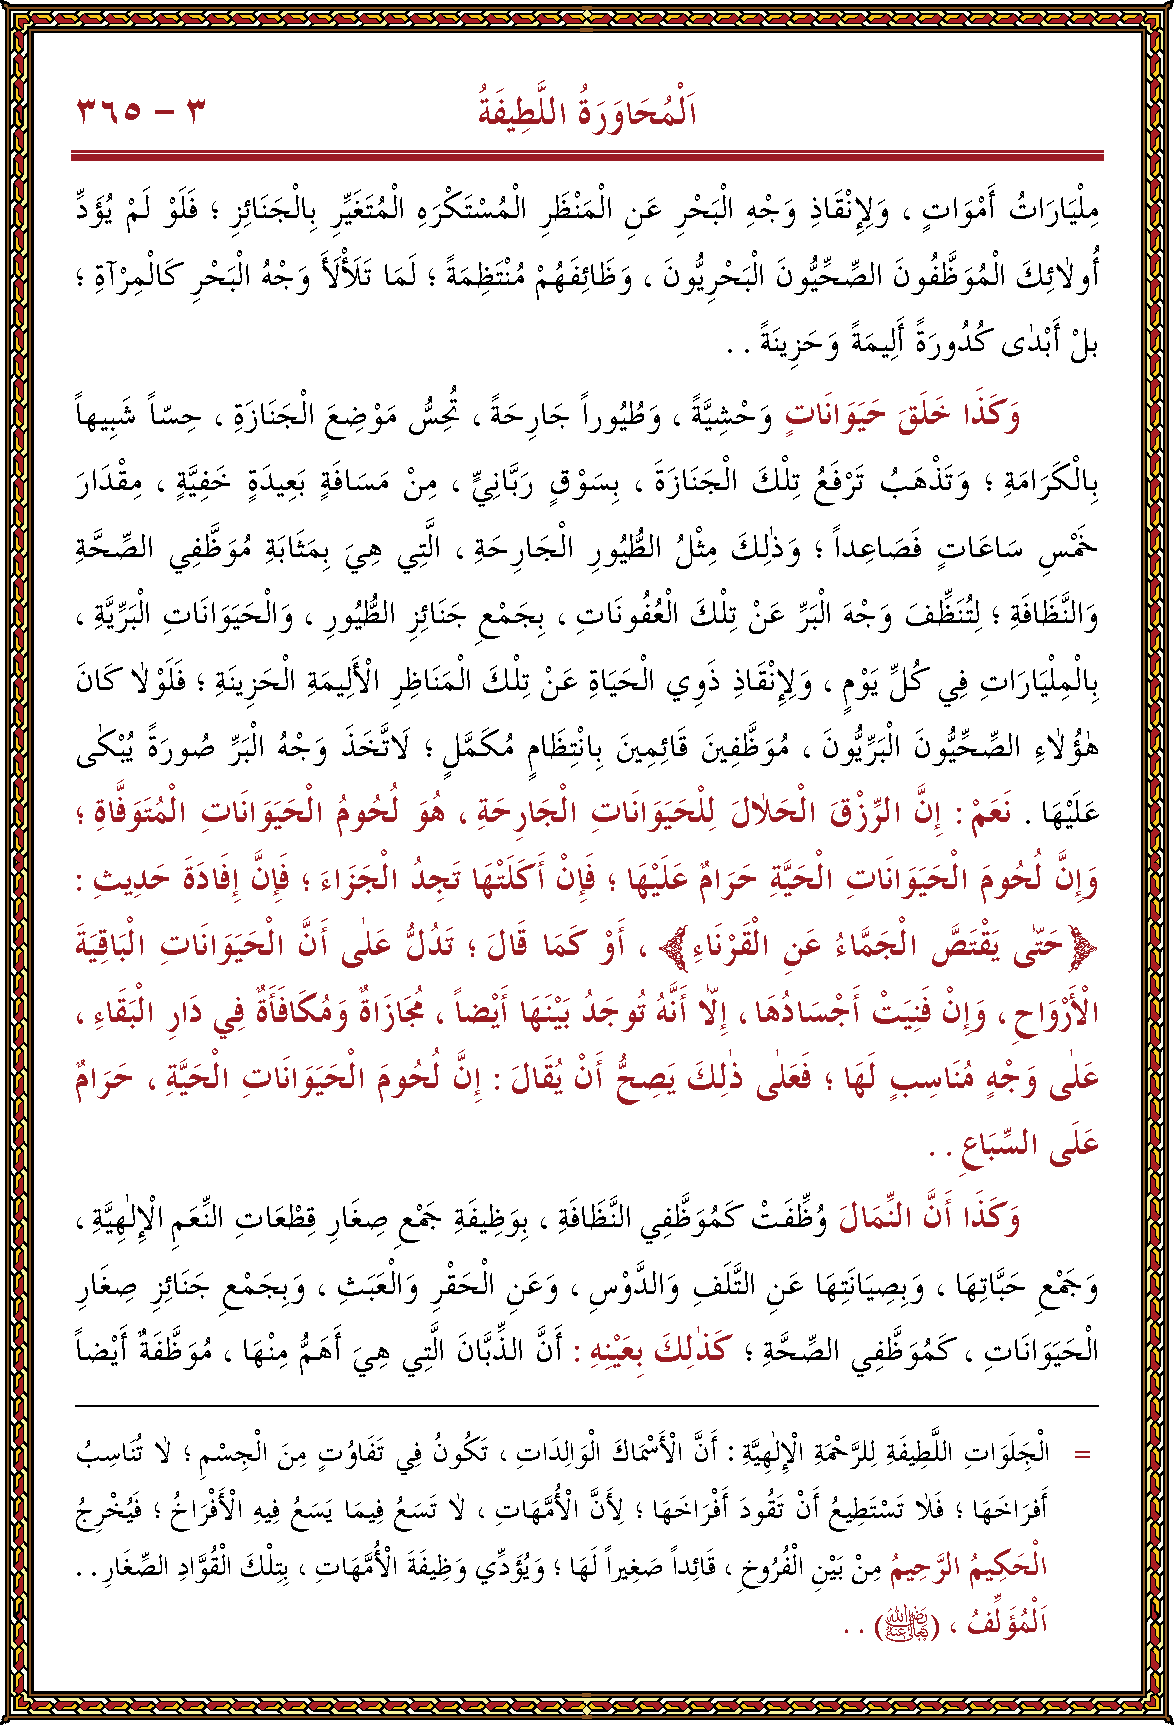 اَلْمُحَاوَرَةُ اللَّطِيفَةُ
٣ – ٣٦٥
مِلْيَارَاتُ أَمْوَاتٍ ، وَلِإِنْقَاذِ وَجْهِ الْبَحْرِ عَنِ الْمَنْظَرِ الْمُسْتَكْرَهِ الْمُتَغَيِّرِ بِالْجَنَائِزِ ؛ فَلَوْ لَمْ يُؤَدِّ
أُولٰائِكَ الْمُوَظَّفُونَ الصِّحِّيُّونَ الْبَحْرِيُّونَ ، وَظَائِفَهُمْ مُنْتَظِمَةً ؛ لَمَا تَلَأْلَأَ وَجْهُ الْبَحْرِ كَالْمِرْآةِ ؛
بلْ أَبْدٰى كُدُورَةً أَلِيمَةً وَحَزِينَةً . .
وَكَذَا خَلَقَ حَيَوَانَاتٍ وَحْشِيَّةً ، وَطُيُوراً جَارِحَةً ، تُحِسُّ مَوْضِعَ الْجَنَازَةِ ، حِسّاً شَبِيهاً
بِالْكَرَامَةِ ؛ وَتَذْهَبُ تُرْفَعُ تِلْكَ الْجَنَازَةَ ، بِسَوْقٍ رَبَّانِيٍّ ، مِنْ مَسَافَةٍ بَعِيدَةٍ خَفِيَّةٍ ، مِقْدَارَ
خَمْسِ سَاعَاتٍ فَصَاعِداً ؛ وَذٰلِكَ مِثْلُ الطُّيُورِ الْجَارِحَةِ ، الَّتِي هِيَ بِمَثَابَةِ مُوَظَّفِي الصِّحَّةِ
وَالنَّظَافَةِ ؛ لِتُنَظِّفَ وَجْهَ الْبَرِّ عَنْ تِلْكَ الْعُفُونَاتِ ، بِجَمْعِ جَنَائِزِ الطُّيُورِ ، وَالْحَيَوَانَاتِ الْبَرِّيَّةِ ،
بِالْمِلْيَارَاتِ فِي كُلِّ يَوْمٍ ، وَلِإِنْقَاذِ ذَوِي الْحَيَاةِ عَنْ تِلْكَ الْمَنَاظِرِ الْأَلِيمَةِ الْحَزِينَةِ ؛ فَلَوْلٰا كَانَ
هٰؤُلٰاءِ الصِّحِّيُّونَ الْبَرِّيُّونَ ، مُوَظَّفِينَ قَائِمِينَ بِانْتِظَامٍ مُكَمَّلٍ ؛ لَاتَّخَذَ وَجْهُ الْبَرِّ صُورَةً يُبْكٰى
عَلَيْهَا . نَعَمْ : إِنَّ الرِّزْقَ الْحَلٰالَ لِلْحَيَوَانَاتِ الْجَارِحَةِ ، هُوَ لُحُومُ الْحَيَوَانَاتِ الْمُتَوَفَّاةِ ؛
وَإِنَّ لُحُومَ الْحَيَوَانَاتِ الْحَيَّةِ حَرَامٌ عَلَيْهَا ؛ فَإِنْ أَكَلَتْهَا تَجِدُ الْجَزَاءَ ؛ فَإِنَّ إِفَادَةَ حَدِيثِ :
﴿حَتّٰى يَقْتَصَّ الْجَمَّاءُ عَنِ الْقَرْنَاءِ﴾ ، أَوْ كَمَا قَالَ ؛ تَدُلُّ عَلٰى أَنَّ الْحَيَوَانَاتِ الْبَاقِيَةَ
الْأَرْوَاحِ ، وَإِنْ فَنِيَتْ أَجْسَادُهَا ، إِلّٰا أَنَّهُ تُوجَدُ بَيْنَهَا أَيْضاً ، مُجَازَاةٌ وَمُكَافَأَةٌ فِي دَارِ الْبَقَاءِ ،
عَلٰى وَجْهٍ مُنَاسِبٍ لَهَا ؛ فَعَلٰى ذٰلِكَ يَصِحُّ أَنْ يُقَالَ : إِنَّ لُحُومَ الْحَيَوَانَاتِ الْحَيَّةِ ، حَرَامٌ
عَلَى السِّبَاعِ . .
وَكَذَا أَنَّ النِّمَالَ وُظِّفَتْ كَمُوَظَّفِي النَّظَافَةِ ، بِوَظِيفَةِ جَمْعِ صِغَارِ قِطْعَاتِ النِّعَمِ الْإِلٰهِيَّةِ ،
وَجَمْعِ حَبَّاتِهَا ، وَبِصِيَانَتِهَا عَنِ التَّلَفِ وَالدَّوْسِ ، وَعَنِ الْحَقْرِ وَالْعَبَثِ ، وَبِجَمْعِ جَنَائِزِ صِغَارِ
الْحَيَوَانَاتِ ، كَمُوَظَّفِي الصِّحَّةِ ؛ كَذٰلِكَ بِعَيْنِهِ : أَنَّ الذِّبَّانَ الَّتِي هِيَ أَهَمُّ مِنْهَا ، مُوَظَّفَةٌ أَيْضاً
= الْجِلَوَاتِ اللَّطِيفَةِ لِلرَّحْمَةِ الْإِلٰهِيَّةِ : أَنَّ الْأَسْمَاكَ الْوَالِدَاتِ ، تَكُونُ فِي تَفَاوُتٍ مِنَ الْجِسْمِ ؛ لٰا تُنَاسِبُ
أَفرَاخَهَا ؛ فَلٰا تَسْتَطِيعُ أَنْ تَقُودَ أَفْرَاخَهَا ؛ لِأَنَّ الْأُمَّهَاتِ ، لٰا تَسَعُ فِيمَا يَسَعُ فِيهِ الْأَفْرَاخُ ؛ فَيُخْرِجُ
الْحَكِيمُ الرَّحِيمُ مِنْ بَيْنِ الْفُرُوخِ ، قَائِداً صَغِيراً لَهَا ؛ وَيُؤَدِّي وَظِيفَةَ الْأُمَّهَاتِ ، بِتِلْكَ الْقُوَّادِ الصِّغَارِ . .
اَلْمُؤَلِّفُ ، (رضي الله تعالى عنه) . .